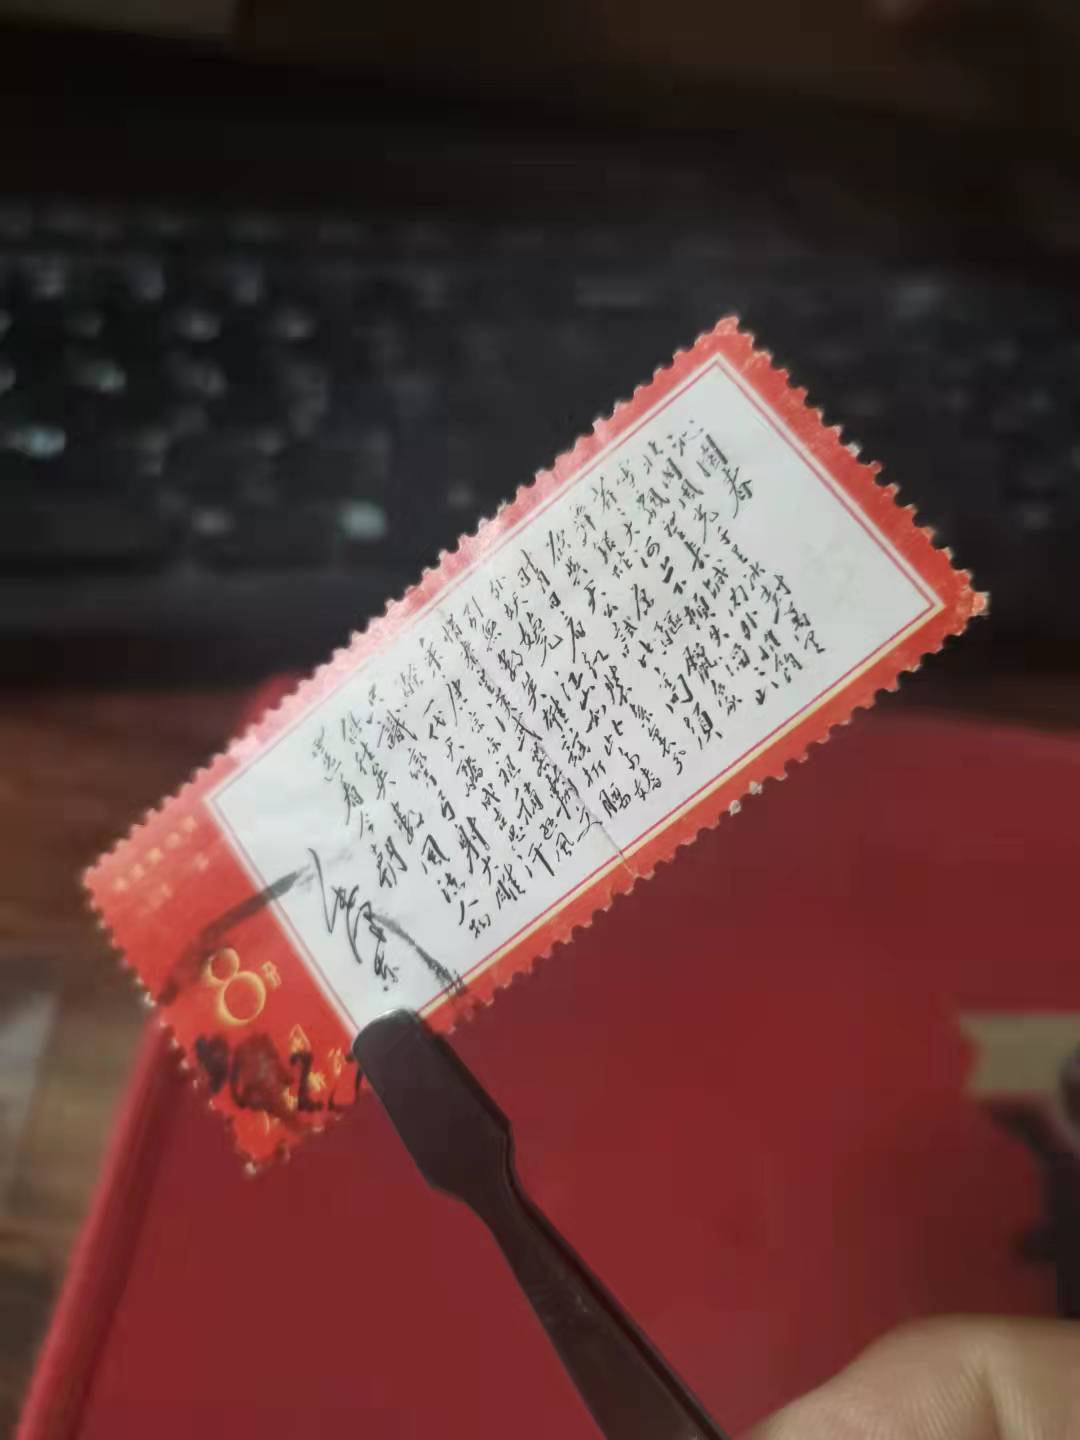 沁园春
北国风光千里冰封万里
雪飘望长城内外惟馀
莽莽大河上下顿失滔滔山
舞银蛇原驱腊象
欲与天公试比高须
晴日看红装素裹分
外妖娆江山如此多娇
引无数英雄竞折腰
惜秦皇汉武略输文
采唐宗宋祖稍逊风
骚一代天骄成吉思汗
只识弯弓射大雕
俱往矣数风流人物
还看今朝
毛泽东
8分